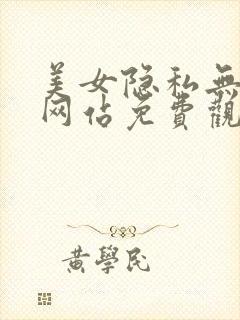 美女隐私無
网佔免費觀
黄學民